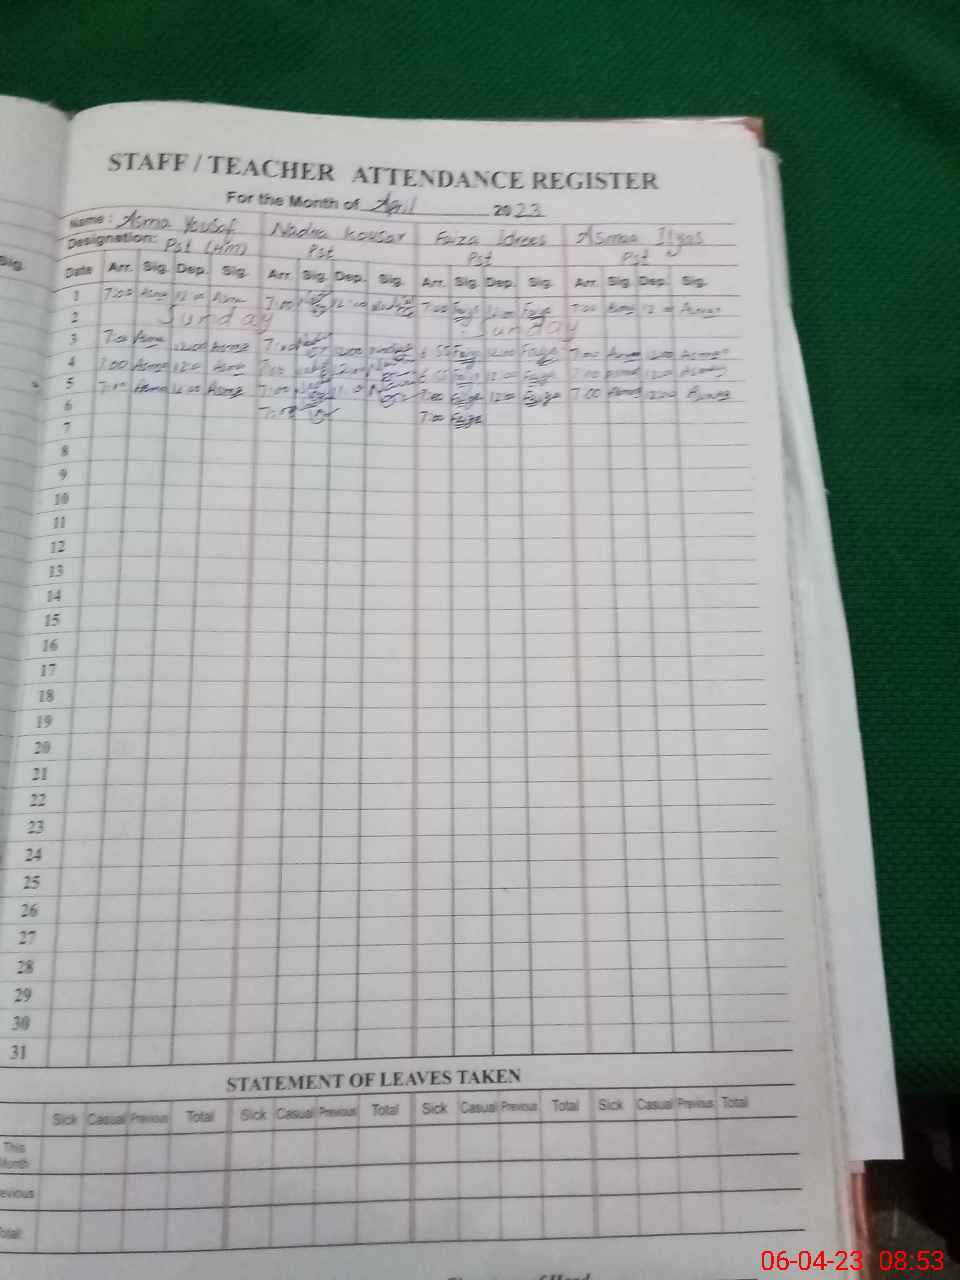 STAFF / TEACHER ATTENDANCE REGISTER
For the Month of April 2023
Name: Asma Yousaf Nadra Kousar Faiza Idrees Asmaa Ilyas
Designation: Pst (Hm) Pst Pst Pst
Sig.
Date Arr. Sig. Dep. Sig. Arr. Sig. Dep. Sig. Arr. Sig. Dep. Sig. Arr. Sig. Dep. Sig.
1 7:00 Asma 12:00 Asma 7:00 12:00 7:00 Faiza 12:00 Faiza 7:00 12:00 Asmaa
2 Sunday Sunday
3 7:00 Asma 12:00 Asma 7:00 12:00 6:55 Faiza 12:00 Faiza 7:00 Asmaa 12:00 Asmaa
4 7:00 Asma 12:00 Asma 7:00 12:00 6:55 Faiza 12:00 Faiza 7:00 Asmaa 12:00 Asmaa
5 7:00 Asma 12:00 Asma 7:00 7:00 Faiza 12:00 Faiza 7:00 Asmaa 12:00 Asmaa
6 7:00 7:00 Faiza
7
8
9
10
11
12
13
14
15
16
17
18
19
20
21
22
23
24
25
26
27
28
29
30
31
STATEMENT OF LEAVES TAKEN
Sick Casual Previous Total Sick Casual Previous Total Sick Casual Previous Total Sick Casual Previous Total
This
Month
evious
otal
06-04-23 08:53